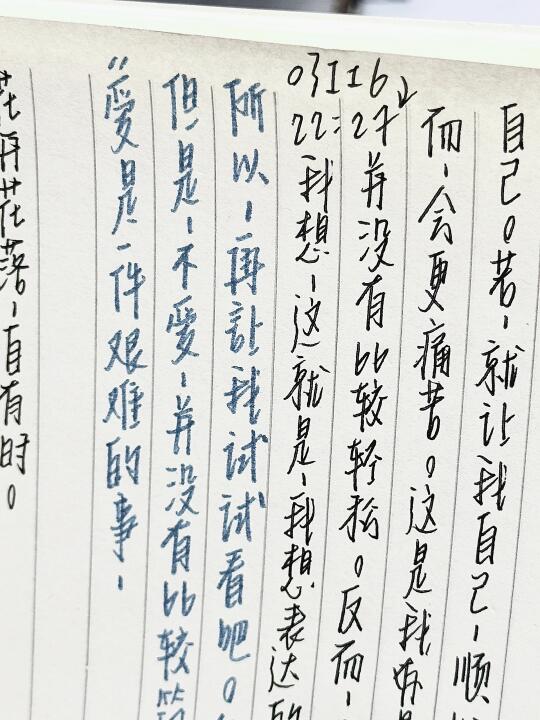 落，自有时。
“爱是一件艰难的事，
但是，不爱，并没有比较
所以，再让我试试看吧。
03116↓
22:27
我想，这就是，我想表达的
并没有比较轻松。反而，
而，会更痛苦。这是我
自己。苦，就让我自己，顺